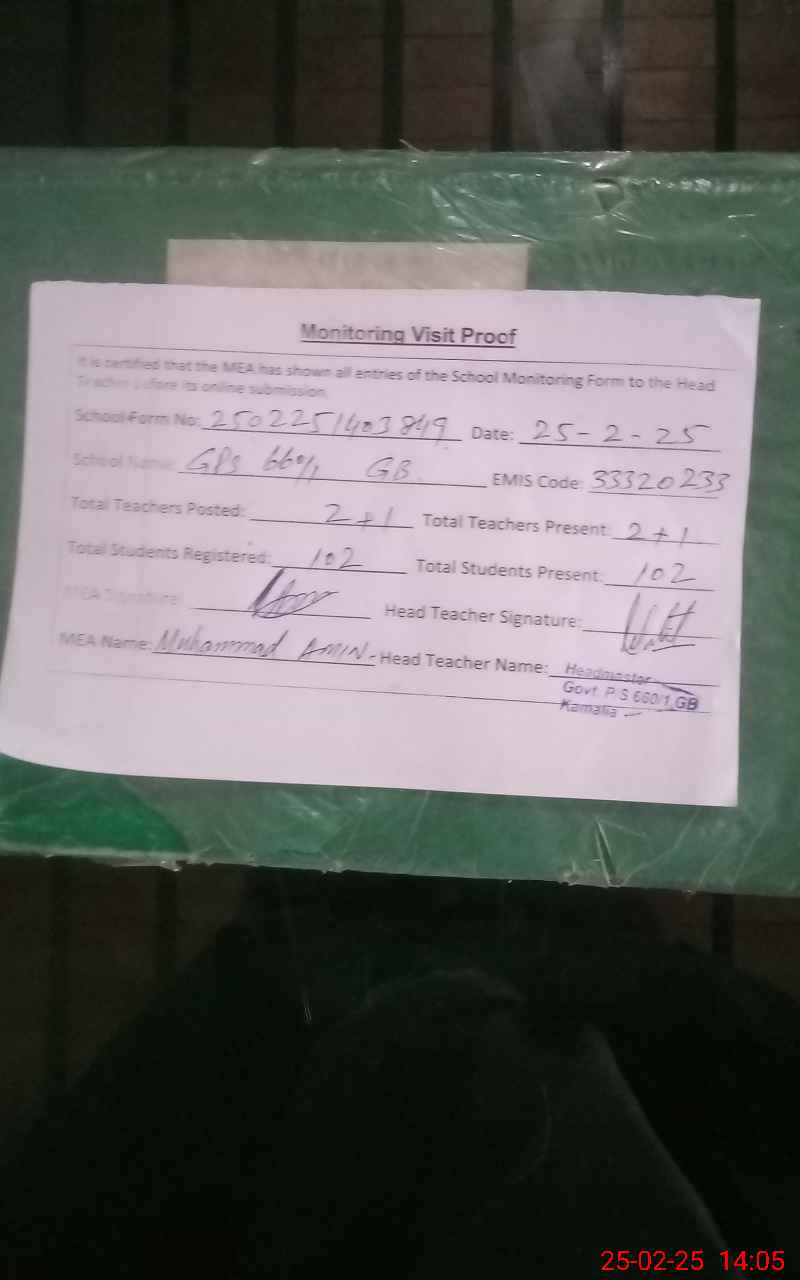 Monitoring Visit Proof
It is certified that the MEA has shown all entries of the School Monitoring Form to the Head
Teacher before its online submission.
School Form No: 2502251403849 Date: 25-2-25
School Name: GPS 660/1 GB. EMIS Code: 33320233
Total Teachers Posted: 2+1 Total Teachers Present: 2+1
Total Students Registered: 102 Total Students Present: 102
MEA Signature: Head Teacher Signature:
MEA Name: Muhammad AMIN- Head Teacher Name: Headmaster
Govt. P.S 660/1 GB
Kamalia
25-02-25 14:05